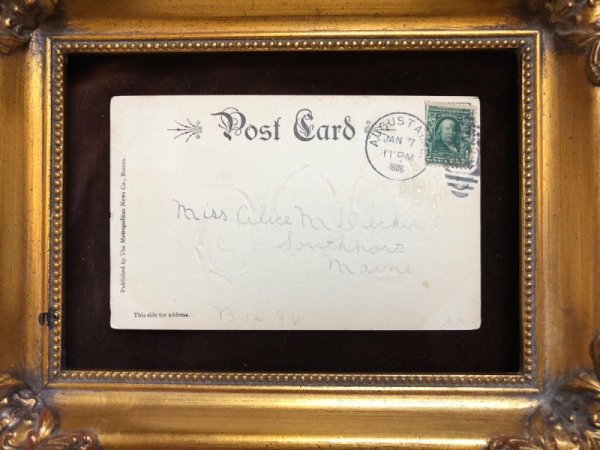 Post Card
AUGUSTA
JAN 7
11 PM
1906
Miss. Alice M Decker
Southport
Maine
Box 36
This side for address.
Published by The Metropolitan News Co., Boston.